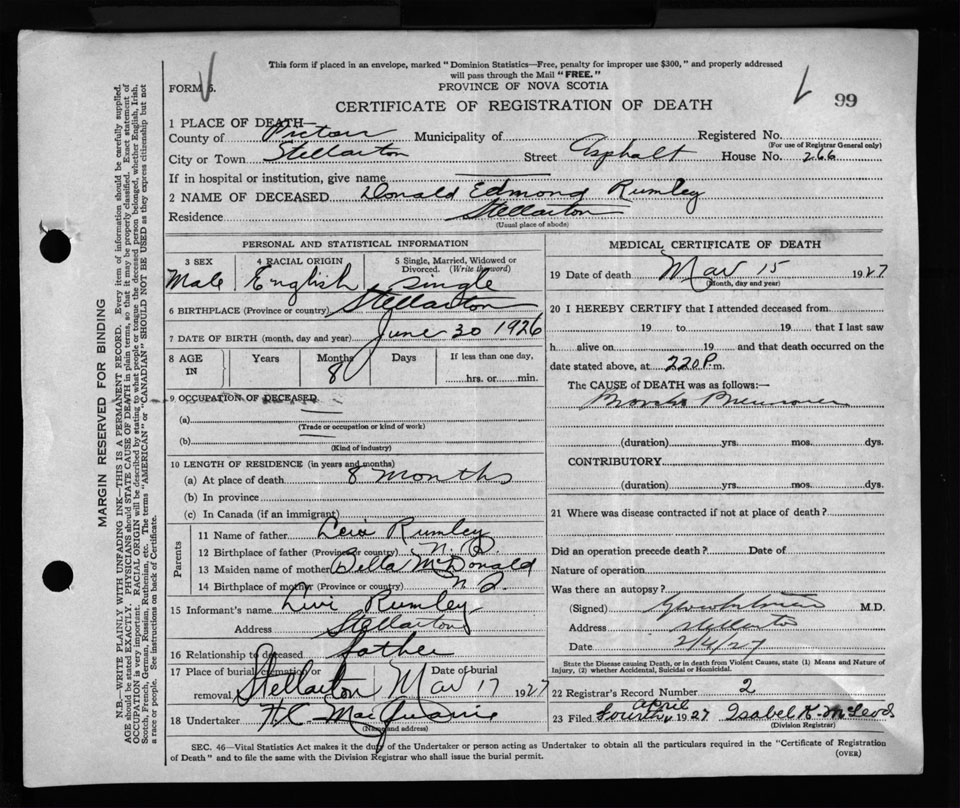 This form if placed in an envelope, marked "Dominion Statistics—Free, penalty for improper use $300," and properly addressed
will pass through the Mail "FREE."
FORM 5.
PROVINCE OF NOVA SCOTIA
CERTIFICATE OF REGISTRATION OF DEATH
99
1 PLACE OF DEATH—
County of Pictou Municipality of Registered No.
(For use of Registrar General only)
City or Town Stellarton Street Asphalt House No. 266
If in hospital or institution, give name
2 NAME OF DECEASED Donald Edmond Rumley
Residence Stellarton
(Usual place of abode)
PERSONAL AND STATISTICAL INFORMATION
3 SEX Male
4 RACIAL ORIGIN English
5 Single, Married, Widowed or Divorced. (Write the word) Single
6 BIRTHPLACE (Province or country) Stellarton
7 DATE OF BIRTH (month, day and year) June 30 1926
8 AGE IN Years Months 8 Days If less than one day, hrs. or min.
9 OCCUPATION OF DECEASED
(a)
(Trade or occupation or kind of work)
(b)
(Kind of industry)
10 LENGTH OF RESIDENCE (in years and months)
(a) At place of death 8 months
(b) In province
(c) In Canada (if an immigrant)
Parents
11 Name of father Levi Rumley
12 Birthplace of father (Province or country) N.
13 Maiden name of mother Bella McDonald
14 Birthplace of mother (Province or country) N
15 Informant's name Levi Rumley
Address Stellarton
16 Relationship to deceased father
17 Place of burial, cremation or removal Stellarton Date of burial Mar 17 1927
18 Undertaker H.C. MacQuarrie
(Name and address)
MEDICAL CERTIFICATE OF DEATH
19 Date of death Mar 15 1927
(Month, day and year)
20 I HEREBY CERTIFY that I attended deceased from
19 to 19 that I last saw
h alive on 19 and that death occurred on the
date stated above, at 2 20 P.m.
The CAUSE of DEATH was as follows:—
Broncho Pneumonia
(duration) yrs. mos. dys.
CONTRIBUTORY
(duration) yrs. mos. dys.
21 Where was disease contracted if not at place of death?
Did an operation precede death? Date of
Nature of operation
Was there an autopsy?
(Signed) M.D.
Address Stellarton
Date 2/4/27
State the Disease causing Death, or in death from Violent Causes, state (1) Means and Nature of
Injury, (2) whether Accidental, Suicidal or Homicidal.
22 Registrar's Record Number 2
23 Filed fourth April 1927 Isabel K McLeod
(Division Registrar)
SEC. 46—Vital Statistics Act makes it the duty of the Undertaker or person acting as Undertaker to obtain all the particulars required in the "Certificate of Registration
of Death" and to file the same with the Division Registrar who shall issue the burial permit.
(OVER)
MARGIN RESERVED FOR BINDING
N.B.—WRITE PLAINLY WITH UNFADING INK—THIS IS A PERMANENT RECORD. Every item of information should be carefully supplied.
AGE should be stated EXACTLY. PHYSICIANS should STATE CAUSE OF DEATH in plain terms, so that it may be properly classified. Exact statement of
OCCUPATION is very important. RACIAL ORIGIN will be described by stating to what people or tongue the deceased person belonged, whether English, Irish,
Scotch, French, German, Russian, Ruthenian, etc. The terms "AMERICAN" or "CANADIAN" SHOULD NOT BE USED as they express citizenship but not
a race or people. See instructions on back of Certificate.